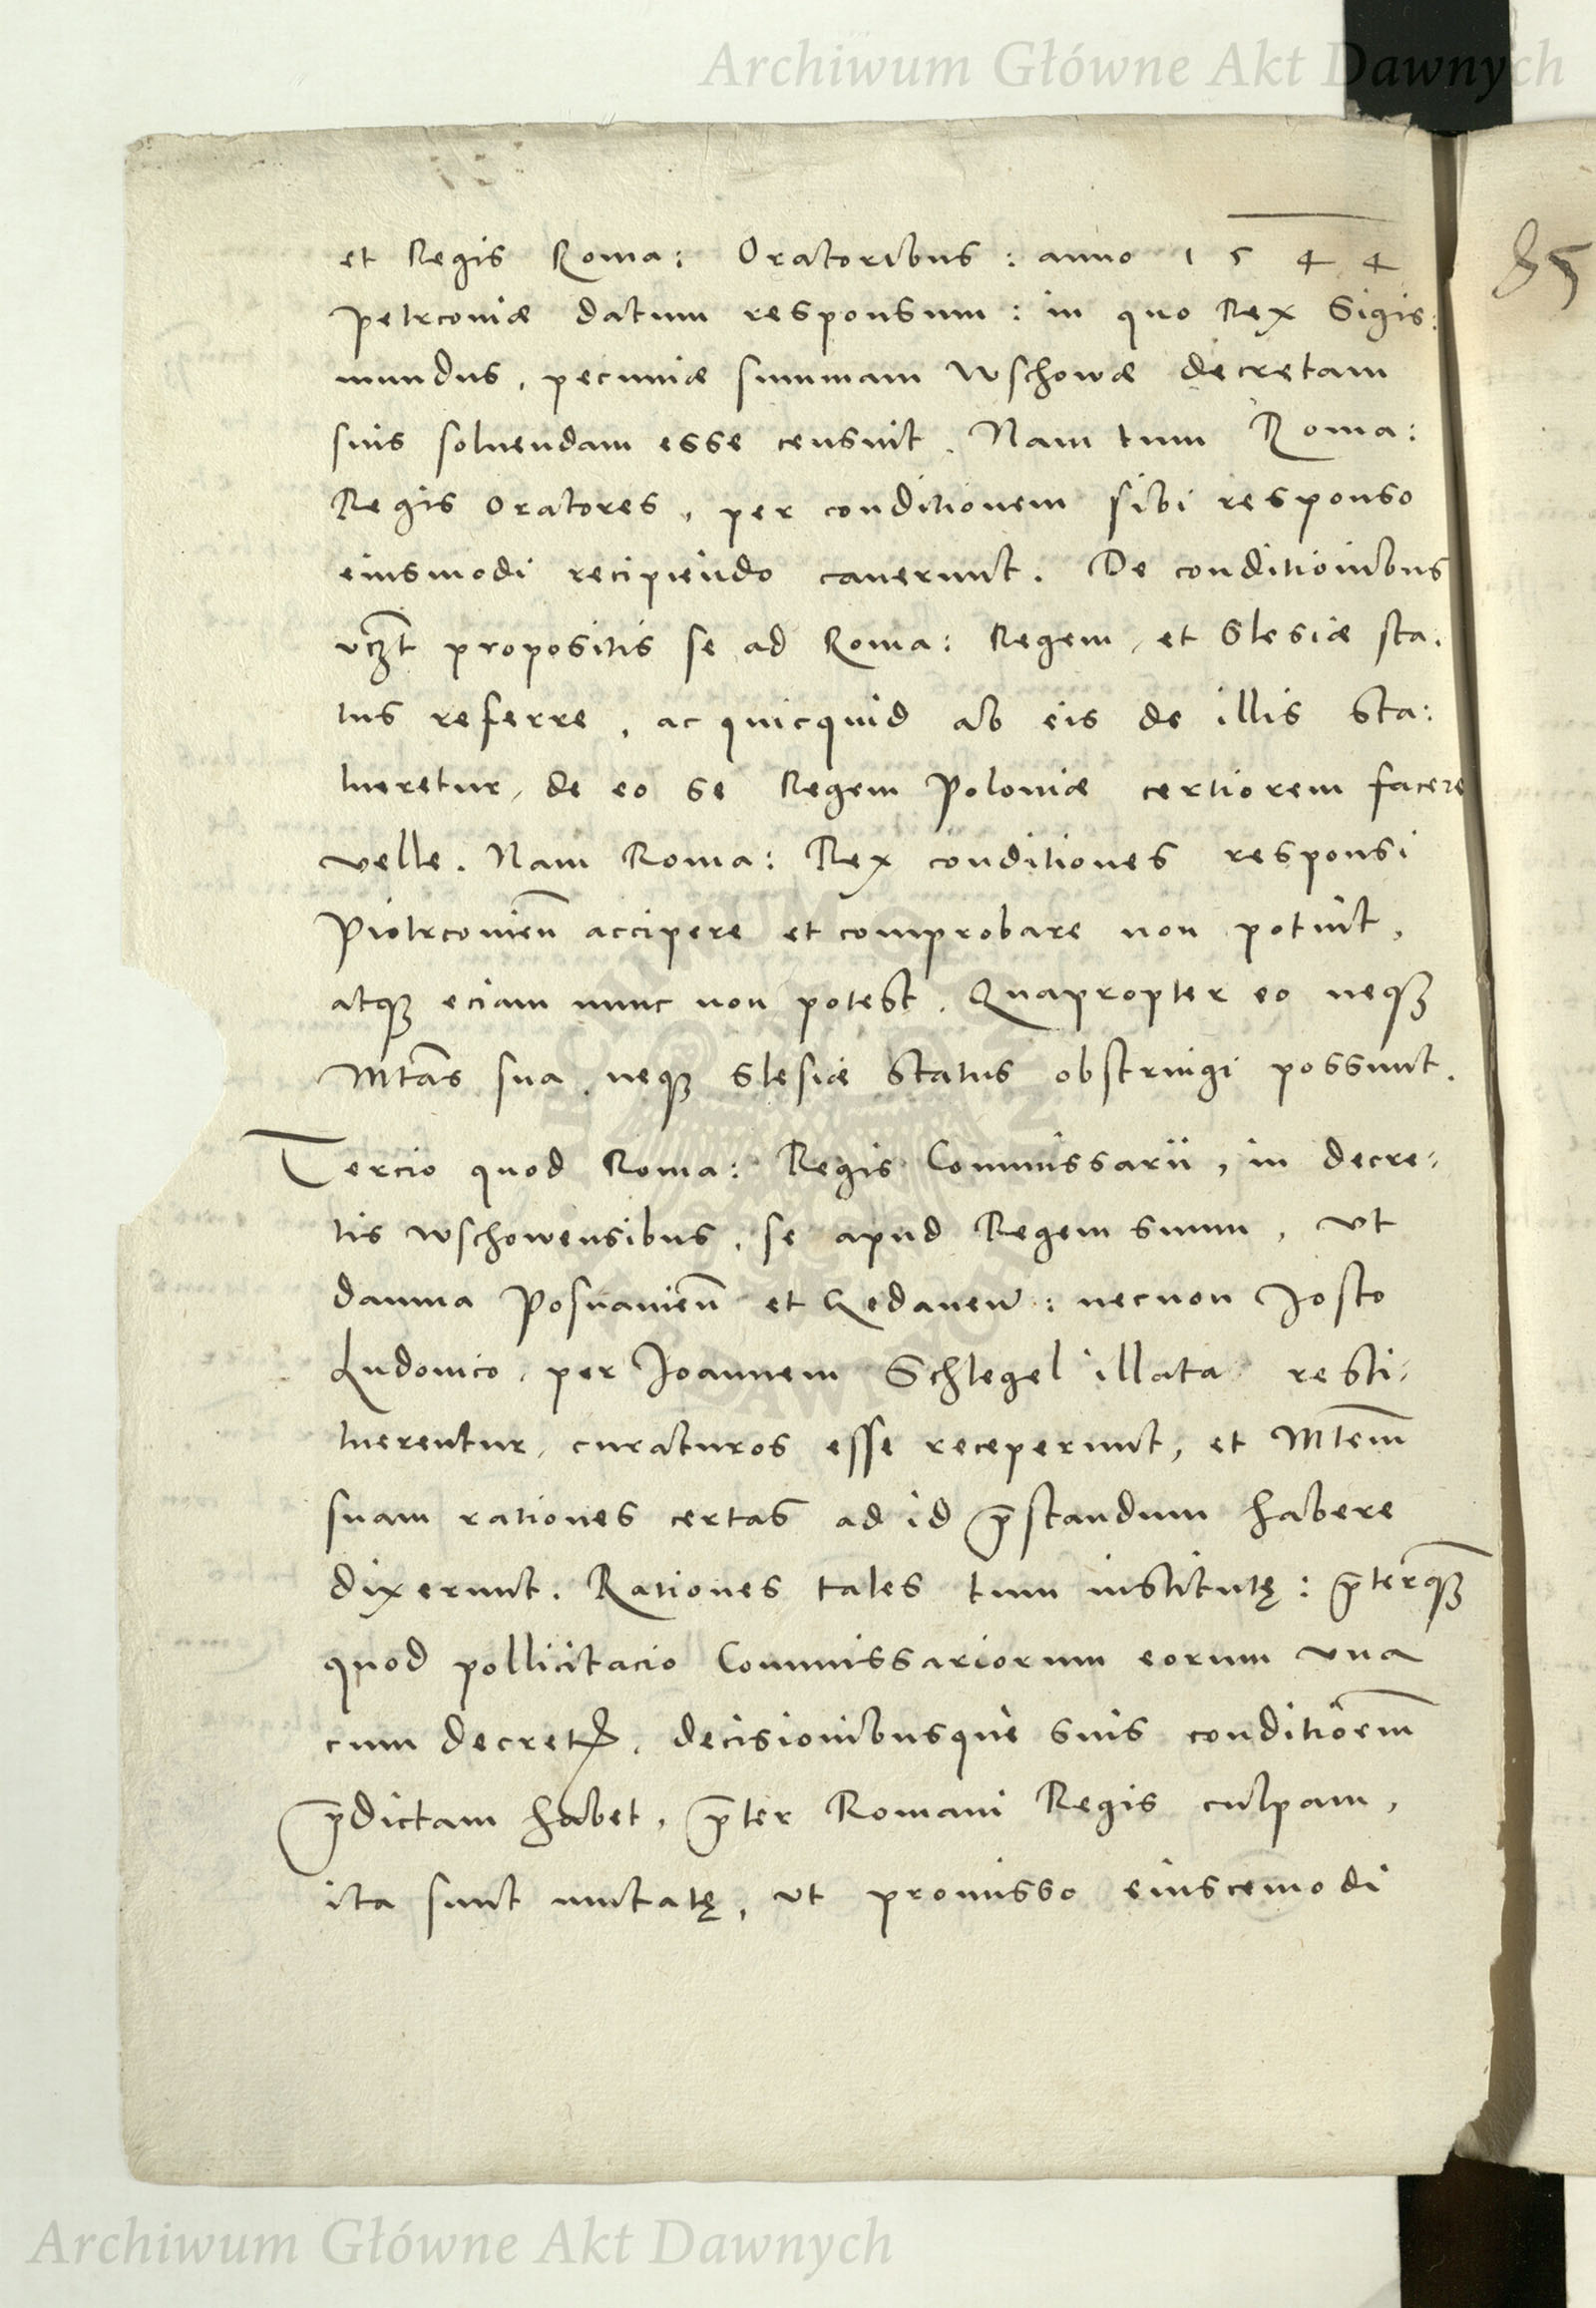 Archiwum Główne Akt Dawnych
et Regis Roma: Oratoribus: anno 1544
85
Petrconiæ datum responsum: in quo Rex Sigis:
mundus, pecuniæ summam Wschowæ decretam
suis soluendam esse censuit. Nam tum Roma:
Regis Oratores, per conditionem sibi responso
eiusmodi recipiendo cauerunt. De conditionibus
vꝫt propositis se ad Roma: Regem, et Slesiæ sta.
tus referre, ac quicquid ab eis de illis sta:
tueretur, de eo se Regem Poloniæ certiorem facere
velle. Nam Roma: Rex conditiones responsi
Piotrconień accipere et comprobare non potuit,
atqꝫ eciam nunc non potest. Quapropter eo neqꝫ
Mtas̄ sua, neqꝫ Slesiæ Status obstringi possunt.
Tercio quod Roma: Regis Commissarii, in decre-
tis wschowensibus, se apud Regem suum, vt
damna Posnanień et Gedaneń: necnon Josto
Ludouico, per Joannem Schlegel illata resti-
tuerentur, curaturos esse receperunt, et Mtem̄
suam rationes certas ad id p̄standum habere
dixerunt. Rationes tales tum institutę: p̄terqꝫ
quod pollicitacio Commissariorum eorum vna
cum decretꝭ, decisionibusque suis conditiōem
p̄dictam habet, p̄ter Romani Regis culpam,
ita sunt mutatę, vt promisso eiuscemodi
Archiwum Główne Akt Dawnych